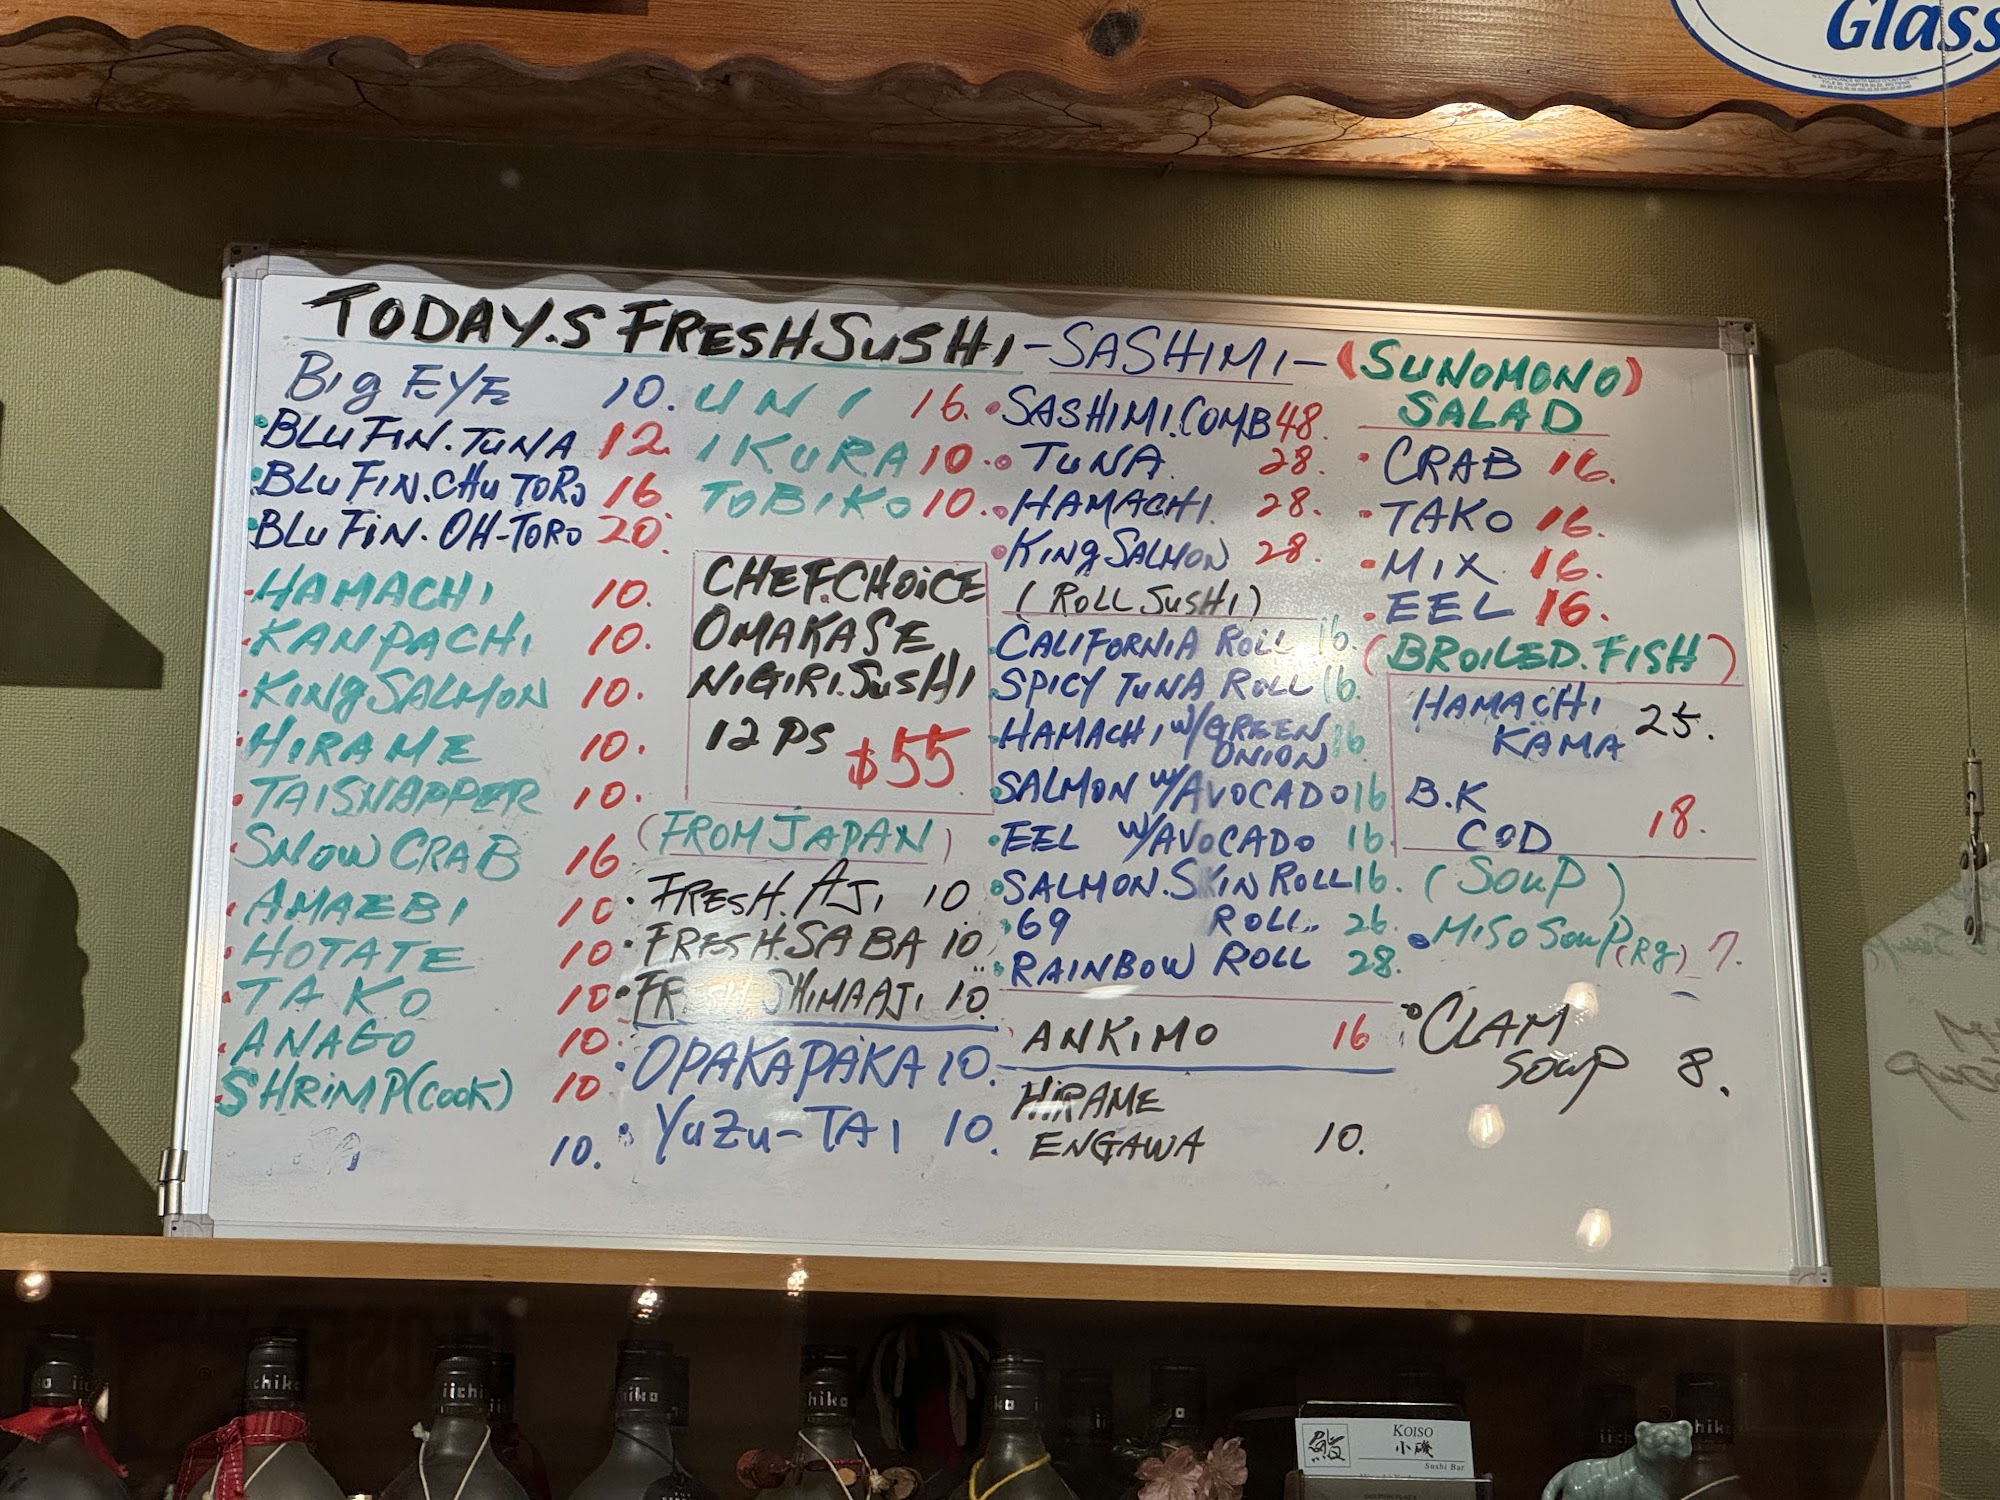 Glass
TODAY.S FRESH SUSHI -SASHIMI- (SUNOMONO)
SALAD
Big EYE 10.
BLUFIN.TUNA 12.
BLUFIN.CHU TORO 16.
BLUFIN.OH-TORO 20.
HAMACHI 10.
KANPACHI 10.
KINGSALMON 10.
HIRAME 10.
TAISNAPPER 10.
SNOWCRAB 16
AMAEBI 10
HOTATE 10
TAKO 10
ANAGO 10.
SHRIMP(COOK) 10
10.
UNI 16.
IKURA 10.
TOBIKO 10.
CHEF.CHOICE
OMAKASE
NIGIRI.SUSHI
12 PS $55
(FROM JAPAN)
FRESH.AJI 10
FRESH.SABA 10
FRESH SHIMAAJI 10.
OPAKAPAKA 10.
YUZU-TAI 10.
SASHIMI.COMB 48.
TUNA. 28.
HAMACHI. 28.
KINGSALMON 28.
(ROLL SUSHI)
CALIFORNIA ROLL 16.
SPICY TUNA ROLL 16
HAMACHI W/GREEN
ONION 16
SALMON W/AVOCADO 16
EEL W/AVOCADO 16.
SALMON.SKIN ROLL 16.
69 ROLL. 26.
RAINBOW ROLL 28.
ANKIMO 16
HIRAME
ENGAWA 10.
CRAB 16.
TAKO 16.
MIX. 16.
EEL 16.
(BROILED.FISH)
HAMACHI
KAMA 25.
B.K
COD 18.
(SOUP)
MISO SOUP(Rg) 7.
CLAM
SOUP 8.
iichiko
KOISO
小磯
Sushi Bar